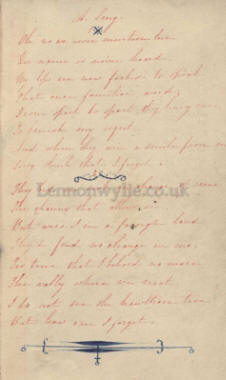 A Song.
Oh no we never mention her
Her name is never heard
My lips are now forbid to speak
That once familiar word;
From sport to sport they hurry me
To banish my regret
And when they win a smile from me
They think that I forget.
They
The charms that
But were I in a foreign land
They'd find no change in me.
Tis true that I behold no more
The valley where we met
I do not see the hawthorn tree
But how can I forget.
Lennonwylie.co.uk